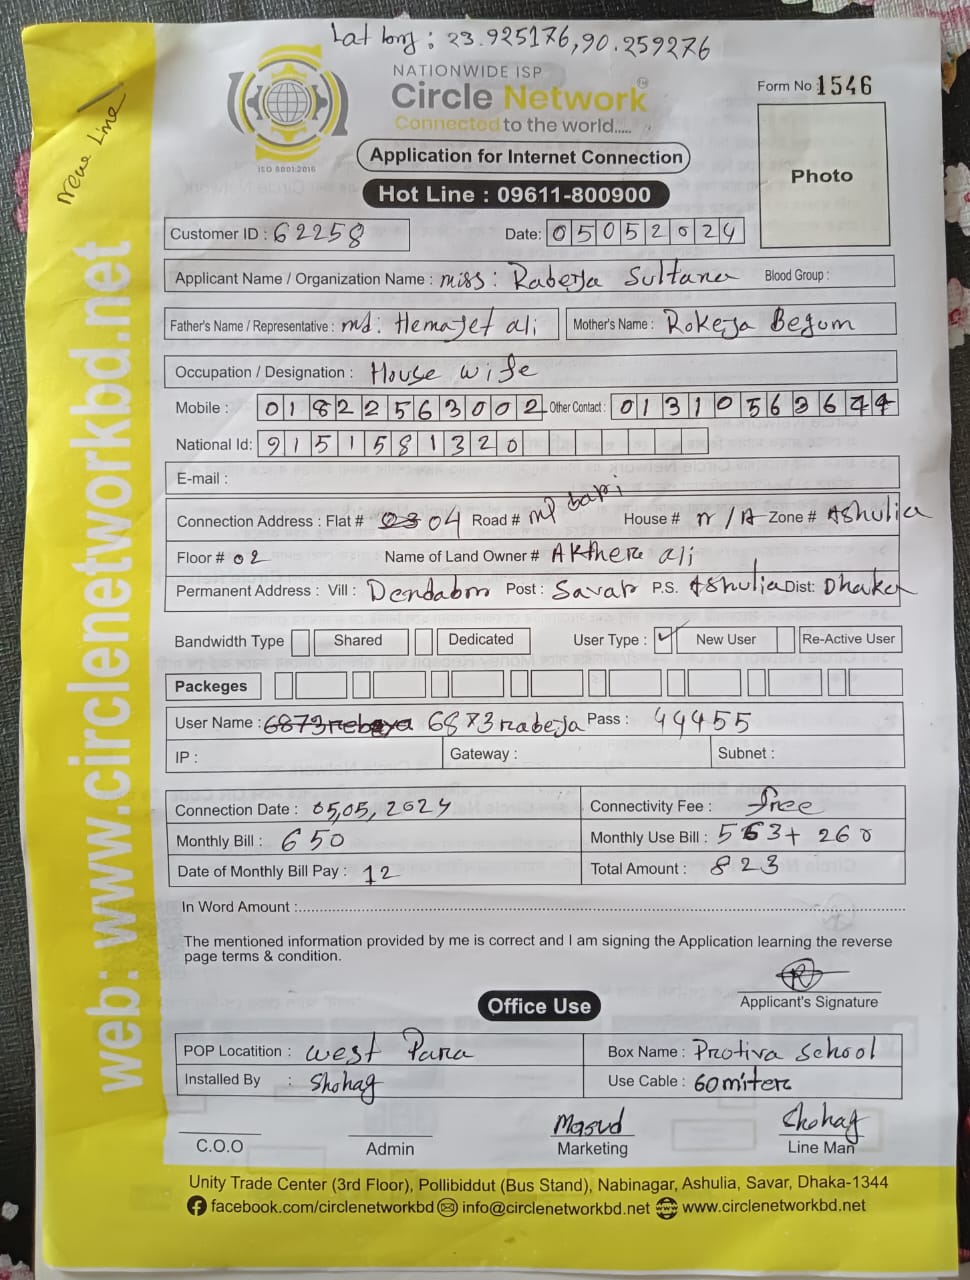 Lat long : 23.925176,90.259276
New Line
NATIONWIDE ISP
Circle Network
Connected to the world.....
ISO 9001:2015
Form No 1546
Photo
Application for Internet Connection
Hot Line : 09611-800900
Customer ID : 62258 Date: 05052024
Applicant Name / Organization Name : miss : Rabeja Sultana Blood Group :
Father's Name / Representative : md: Hemajet ali Mother's Name : Rokeja Begum
Occupation / Designation : House wife
Mobile : 01822563002 Other Contact : 013105636
National Id: 9151581320
E-mail :
Connection Address : Flat # 04 Road # ml bari House # n/A Zone # Ashulia
Floor # 02 Name of Land Owner # AKthere ali
Permanent Address : Vill : Dendabor Post : Savar P.S. Ashulia Dist: Dhaka
Bandwidth Type Shared Dedicated User Type : ✓ New User Re-Active User
Packeges
User Name : 6873rebeya 6873rabeja Pass : 44455
IP : Gateway : Subnet :
Connection Date : 05,05,2024 Connectivity Fee : free
Monthly Bill : 650 Monthly Use Bill : 563+ 260
Date of Monthly Bill Pay : 12 Total Amount : 823
In Word Amount :
The mentioned information provided by me is correct and I am signing the Application learning the reverse
page terms & condition.
Applicant's Signature
Office Use
POP Locatition : west Para Box Name : Protiva School
Installed By : Shohag Use Cable : 60miter
Masud Shohag
C.O.O Admin Marketing Line Man
Unity Trade Center (3rd Floor), Pollibiddut (Bus Stand), Nabinagar, Ashulia, Savar, Dhaka-1344
facebook.com/circlenetworkbd info@circlenetworkbd.net www.circlenetworkbd.net
web: www.circlenetworkbd.net